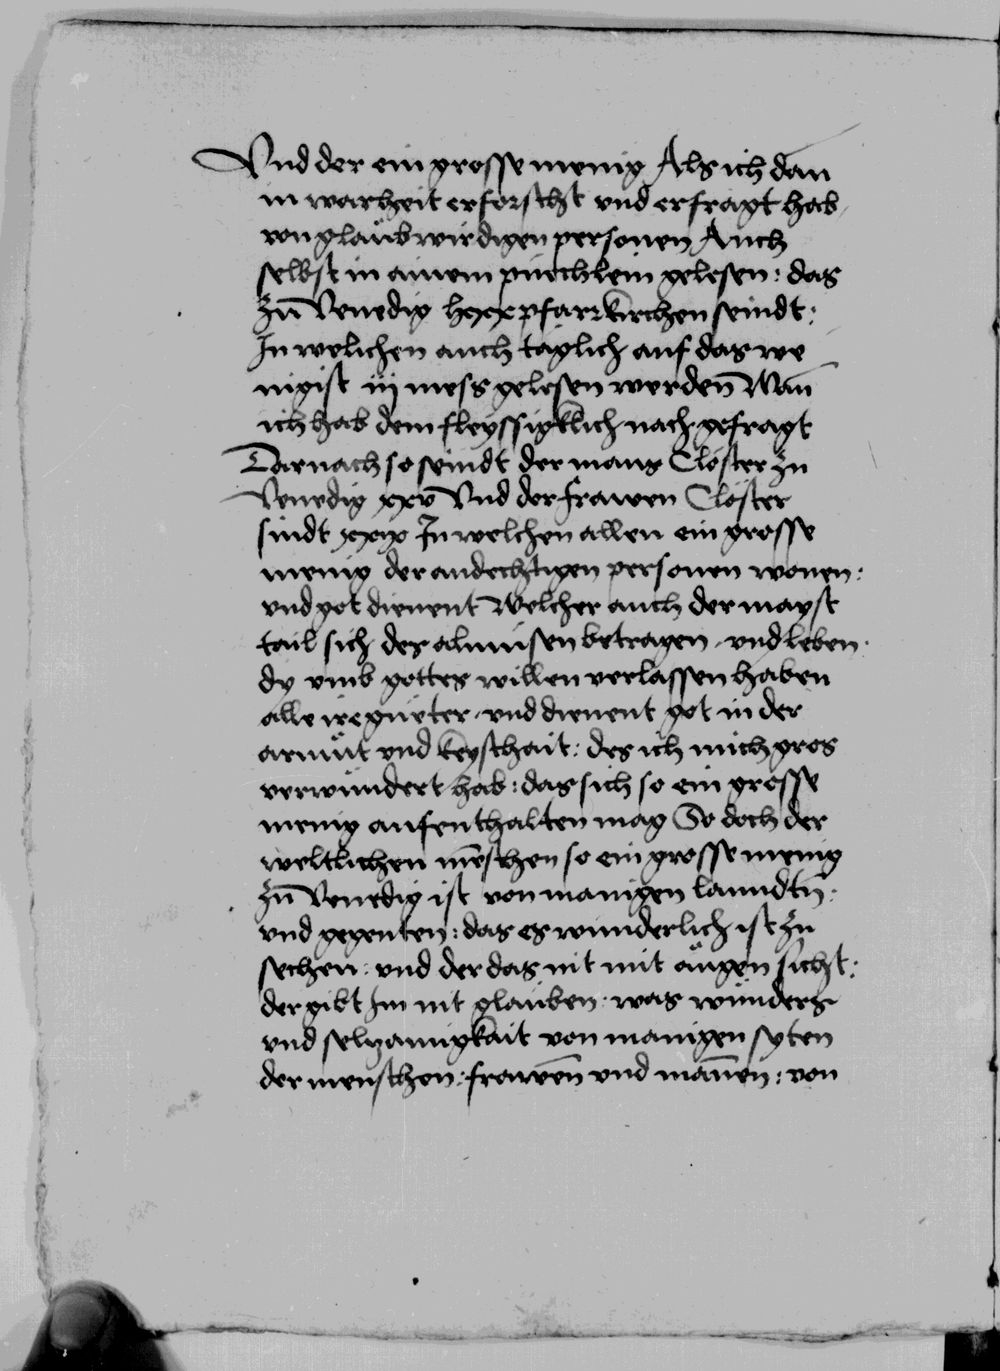 Vnd der ein grosse menig Als ich dan
in warheit erforscht vnd erfragt hab
von glaubwirdigen personen Auch
selbst in ainem püechlein gelesen : das
zu Venedig lxxx pfarrkirchen seindt :
In welichen auch täglich auf das we
nigist iij mess gelesen werden Wan
ich hab dem fleyssigklich nach gefragt
Darnach so seindt der mans Clöster zu
Venedig xxv Vnd der frawen Clöster
sindt xxix In welchen allen ein grosse
menig der andechtigen personen wonen :
vnd got dienent Welcher auch der mayst
tail sich des almüsen betragen . vnd leben .
dy vmb gottes willen verlassen haben
alle ire güeter . vnd dienent got in der
armüt vnd keyschait : des ich mich gros
verwundert hab : das sich so ein grosse
menig aufenthalten mag So doch der
weltlichen mēschen so ein grosse menig
zu Venedig ist von manigen lanndtn̄ .
vnd gegenten : das es wunderlich ist zu
sechen : vnd der das nit mit augen sicht :
der gibt Im nit glauben . was wunders
vnd selzamigkait von manigen syten
der menschen : frawen vnd manen : von